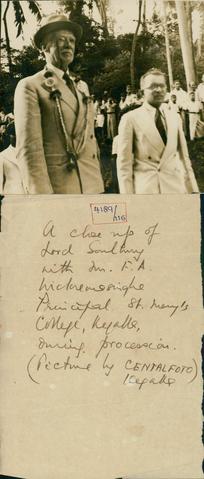 4189/116
A close up of
Lord Soulbury
with Mr. F. A.
Wickremasinghe
Principal St. Mary's
College, Kegalle,
during procession.
(Picture by CENTALFOTO
Kegalle)